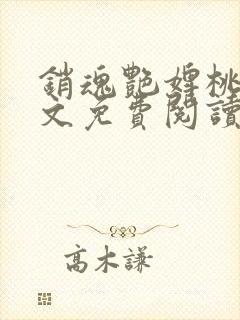 銷魂艷婢桃
文免費閱讀
高木謙